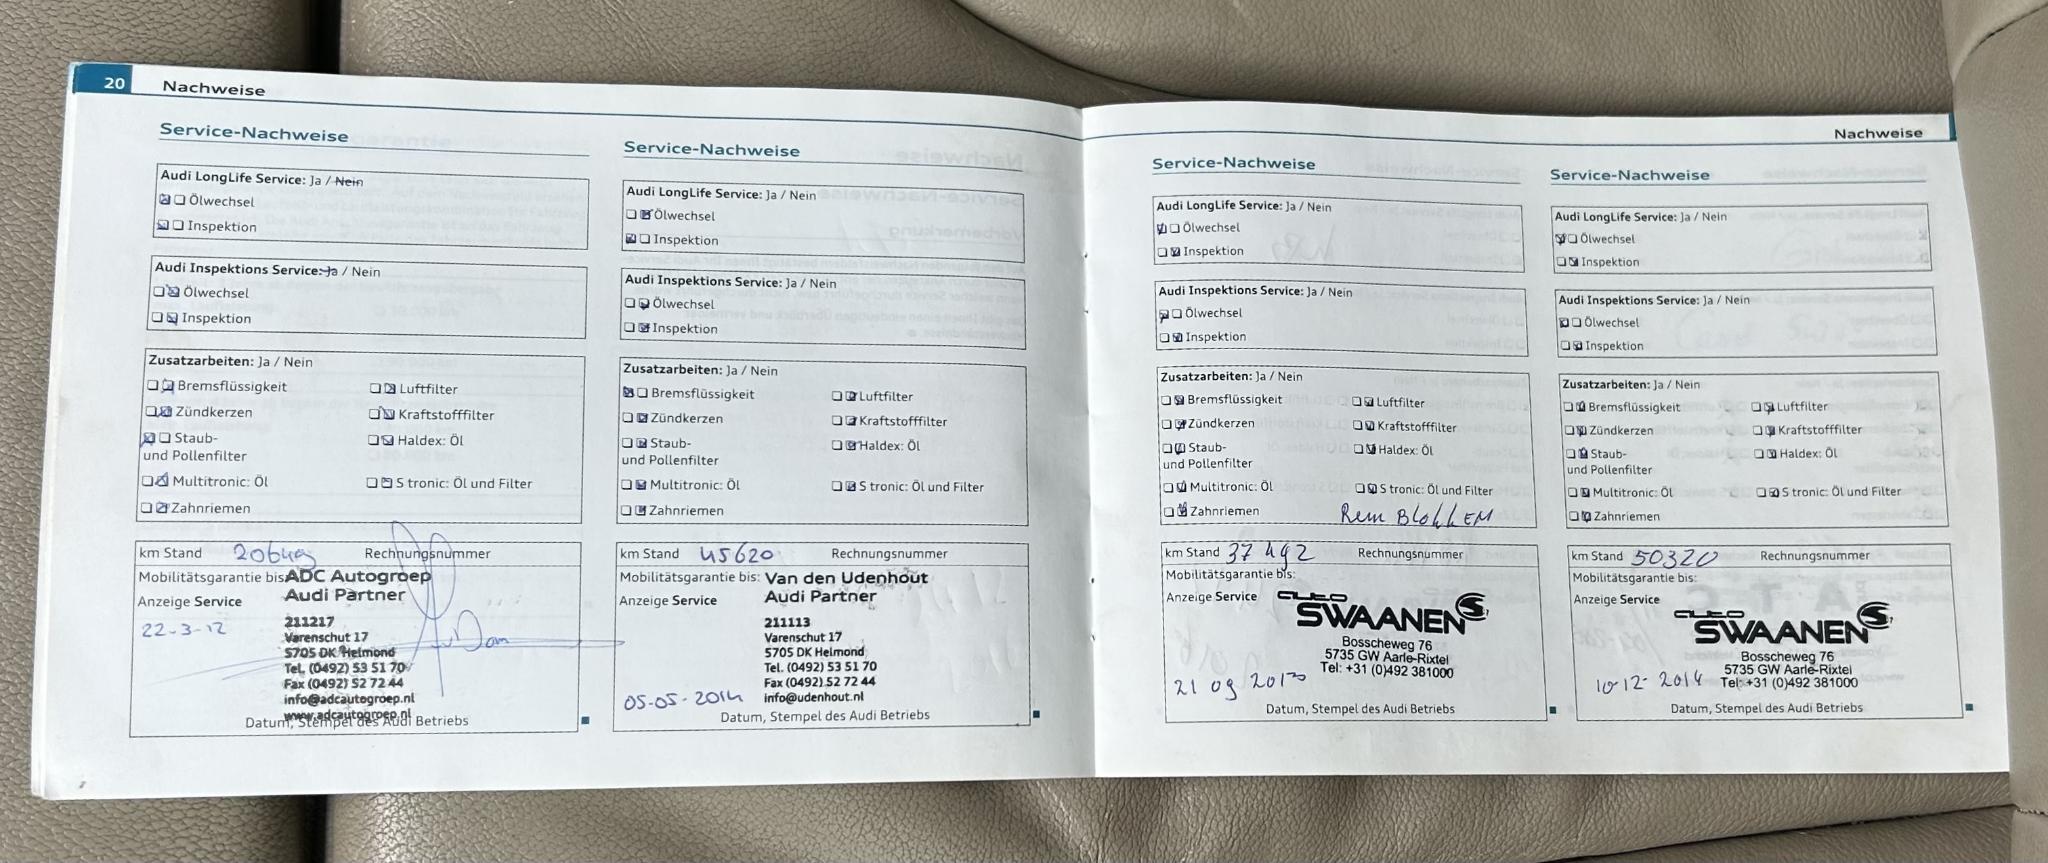 20 Nachweise
Service-Nachweise
Audi LongLife Service: Ja / Nein
Ölwechsel
Inspektion
Audi Inspektions Service: Ja / Nein
Ölwechsel
Inspektion
Zusatzarbeiten: Ja / Nein
Bremsflüssigkeit Luftfilter
Zündkerzen Kraftstofffilter
Staub- Haldex: Öl
und Pollenfilter
Multitronic: Öl S tronic: Öl und Filter
Zahnriemen
km Stand Rechnungsnummer
Mobilitätsgarantie bis ADC Autogroep
Anzeige Service Audi Partner
22-3-12 211217
Varenschut 17
5705 DK Helmond
Tel. (0492) 53 51 70
Fax (0492) 52 72 44
info@adcautogroep.nl
www.adcautogroep.nl
Datum, Stempel des Audi Betriebs
Service-Nachweise
Audi LongLife Service: Ja / Nein
Ölwechsel
Inspektion
Audi Inspektions Service: Ja / Nein
Ölwechsel
Inspektion
Zusatzarbeiten: Ja / Nein
Bremsflüssigkeit Luftfilter
Zündkerzen Kraftstofffilter
Staub- Haldex: Öl
und Pollenfilter
Multitronic: Öl S tronic: Öl und Filter
Zahnriemen
km Stand 45620 Rechnungsnummer
Mobilitätsgarantie bis: Van den Udenhout
Anzeige Service Audi Partner
211113
Varenschut 17
5705 DK Helmond
Tel. (0492) 53 51 70
Fax (0492) 52 72 44
05-05-2014 info@udenhout.nl
Datum, Stempel des Audi Betriebs
Nachweise
Service-Nachweise
Audi LongLife Service: Ja / Nein
Ölwechsel
Inspektion
Audi Inspektions Service: Ja / Nein
Ölwechsel
Inspektion
Zusatzarbeiten: Ja / Nein
Bremsflüssigkeit Luftfilter
Zündkerzen Kraftstofffilter
Staub- Haldex: Öl
und Pollenfilter
Multitronic: Öl S tronic: Öl und Filter
Zahnriemen Rem BLOKKEM
km Stand 37492 Rechnungsnummer
Mobilitätsgarantie bis:
Anzeige Service auto
SWAANEN
Bosscheweg 76
5735 GW Aarle-Rixtel
Tel: +31 (0)492 381000
21 09
Datum, Stempel des Audi Betriebs
Service-Nachweise
Audi LongLife Service: Ja / Nein
Ölwechsel
Inspektion
Audi Inspektions Service: Ja / Nein
Ölwechsel
Inspektion
Zusatzarbeiten: Ja / Nein
Bremsflüssigkeit Luftfilter
Zündkerzen Kraftstofffilter
Staub- Haldex: Öl
und Pollenfilter
Multitronic: Öl S tronic: Öl und Filter
Zahnriemen
km Stand 50320 Rechnungsnummer
Mobilitätsgarantie bis:
Anzeige Service auto
SWAANEN
Bosscheweg 76
5735 GW Aarle-Rixtel
10-12-2014 Tel: +31 (0)492 381000
Datum, Stempel des Audi Betriebs